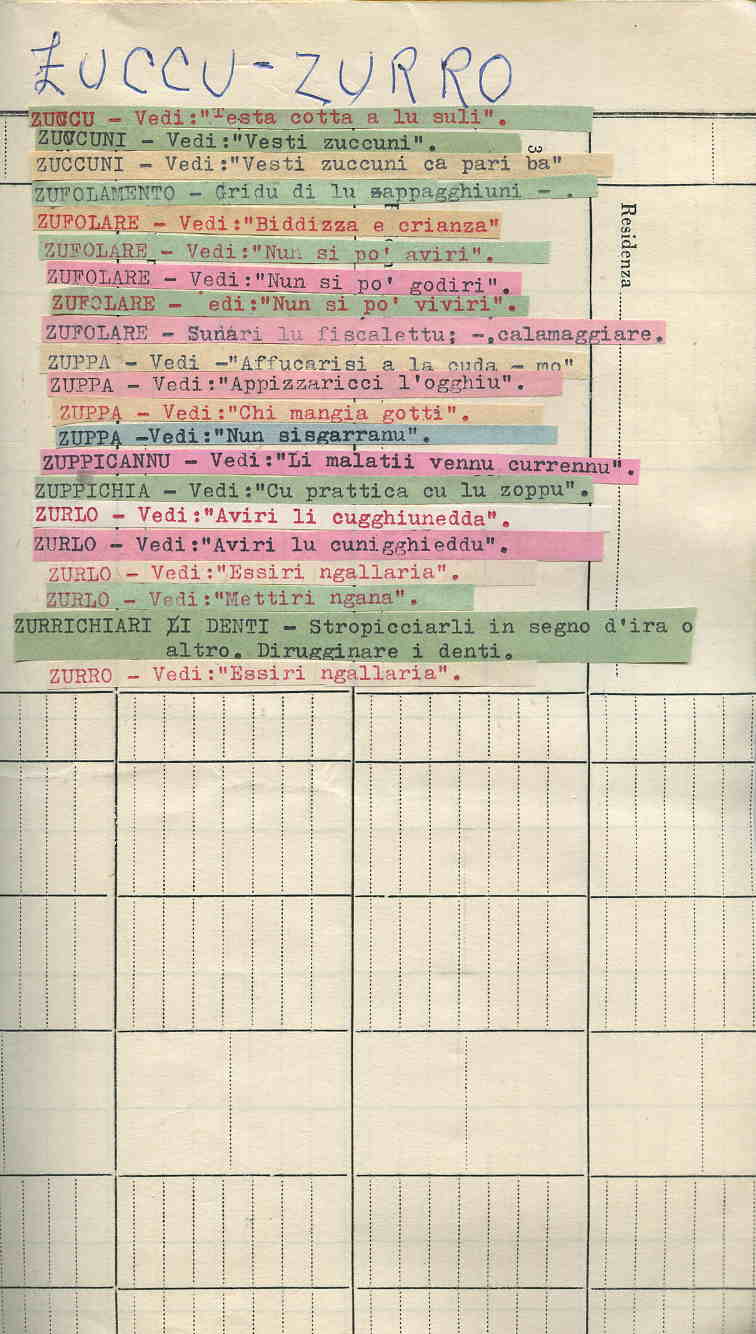 ZUCCU - ZURRO
ZUCCU - Vedi:"Testa cotta a lu suli".
ZUCCUNI - Vedi:"Vesti zuccuni".
3
ZUCCUNI - Vedi:"Vesti zuccuni ca pari ba"
ZUFOLAMENTO - Gridu di lu sappagghiuni - .
ZUFOLARE - Vedi:"Biddizza e crianza"
Residenza
ZUFOLARE - Vedi:"Nun si po' aviri".
ZUFOLARE - Vedi:"Nun si po' godiri".
ZUFOLARE - edi:"Nun si po' viviri".
ZUFOLARE - Sunari lu fiscalettu; -,calamaggiare.
ZUPPA - Vedi -"Affucarisi a la cuda - mo"
ZUPPA - Vedi:"Appizzaricci l'ogghiu".
ZUPPA - Vedi:"Chi mangia gotti".
ZUPPA -Vedi:"Nun sisgarranu".
ZUPPICANNU - Vedi:"Li malatii vennu currennu".
ZUPPICHIA - Vedi:"Cu prattica cu lu zoppu".
ZURLO - Vedi:"Aviri li cugghiunedda".
ZURLO - Vedi:"Aviri lu cunigghieddu".
ZURLO - Vedi:"Essiri ngallaria".
ZURLO - Vedi:"Mettiri ngana".
ZURRICHIARI LI DENTI - Stropicciarli in segno d'ira o
altro. Dirugginare i denti.
ZURRO - Vedi:"Essiri ngallaria".